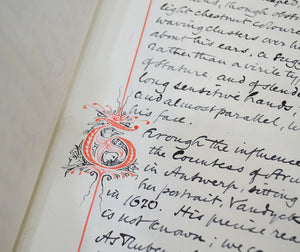 tions, though obst
light chestnut coloure
waving clusters over h
about his ears, a sugg
rather than a virile ty
of stature, and of slend
long sensitive hands,
and almost parallel, li
his face.
Through the influence
the Countess of Aru
in Antwerp, sitting
her portrait, Vandyck
in 1620. His precise rea
is not known; we a
As Ruben